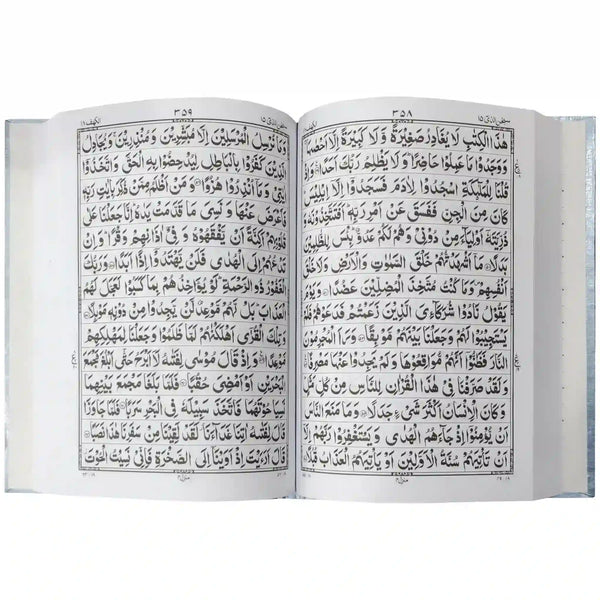 سبحن الذی ۱۵
۳۵۸
الکهف ۱۸
هٰذَا الْكِتٰبِ لَا يُغَادِرُ صَغِيْرَةً وَّ لَا كَبِيْرَةً اِلَّاۤ اَحْصٰىهَا
وَ وَجَدُوْا مَا عَمِلُوْا حَاضِرًا وَ لَا يَظْلِمُ رَبُّكَ اَحَدًا وَ اِذْ
قُلْنَا لِلْمَلٰٓئِكَةِ اسْجُدُوْا لِاٰدَمَ فَسَجَدُوْۤا اِلَّاۤ اِبْلِيْسَ
كَانَ مِنَ الْجِنِّ فَفَسَقَ عَنْ اَمْرِ رَبِّهٖ اَفَتَتَّخِذُوْنَهٗ وَ
ذُرِّيَّتَهٗۤ اَوْلِيَآءَ مِنْ دُوْنِيْ وَ هُمْ لَكُمْ عَدُوٌّ بِئْسَ لِلظّٰلِمِيْنَ
بَدَلًا مَاۤ اَشْهَدْتُّهُمْ خَلْقَ السَّمٰوٰتِ وَ الْاَرْضِ وَ لَا خَلْقَ
اَنْفُسِهِمْ وَ مَا كُنْتُ مُتَّخِذَ الْمُضِلِّيْنَ عَضُدًا وَ يَوْمَ
يَقُوْلُ نَادُوْا شُرَكَآءِيَ الَّذِيْنَ زَعَمْتُمْ فَدَعَوْهُمْ فَلَمْ
يَسْتَجِيْبُوْا لَهُمْ وَ جَعَلْنَا بَيْنَهُمْ مَّوْبِقًا وَ رَاَ الْمُجْرِمُوْنَ
النَّارَ فَظَنُّوْۤا اَنَّهُمْ مُّوَاقِعُوْهَا وَ لَمْ يَجِدُوْا عَنْهَا مَصْرِفًا
وَ لَقَدْ صَرَّفْنَا فِيْ هٰذَا الْقُرْاٰنِ لِلنَّاسِ مِنْ كُلِّ مَثَلٍ
وَ كَانَ الْاِنْسَانُ اَكْثَرَ شَيْءٍ جَدَلًا وَ مَا مَنَعَ النَّاسَ
اَنْ يُّؤْمِنُوْۤا اِذْ جَآءَهُمُ الْهُدٰى وَ يَسْتَغْفِرُوْا رَبَّهُمْ اِلَّاۤ
اَنْ تَاْتِيَهُمْ سُنَّةُ الْاَوَّلِيْنَ اَوْ يَاْتِيَهُمُ الْعَذَابُ قُبُلًا
۳۵۹
الکهف ۱۸
وَ مَا نُرْسِلُ الْمُرْسَلِيْنَ اِلَّا مُبَشِّرِيْنَ وَ مُنْذِرِيْنَ وَ يُجَادِلُ
الَّذِيْنَ كَفَرُوْا بِالْبَاطِلِ لِيُدْحِضُوْا بِهِ الْحَقَّ وَ اتَّخَذُوْۤا
اٰيٰتِيْ وَ مَاۤ اُنْذِرُوْا هُزُوًا وَ مَنْ اَظْلَمُ مِمَّنْ ذُكِّرَ بِاٰيٰتِ رَبِّهٖ
فَاَعْرَضَ عَنْهَا وَ نَسِيَ مَا قَدَّمَتْ يَدٰهُ اِنَّا جَعَلْنَا عَلٰى
قُلُوْبِهِمْ اَكِنَّةً اَنْ يَّفْقَهُوْهُ وَ فِيْۤ اٰذَانِهِمْ وَقْرًا وَ اِنْ
تَدْعُهُمْ اِلَى الْهُدٰى فَلَنْ يَّهْتَدُوْۤا اِذًا اَبَدًا وَ رَبُّكَ
الْغَفُوْرُ ذُو الرَّحْمَةِ لَوْ يُؤَاخِذُهُمْ بِمَا كَسَبُوْا لَعَجَّلَ لَهُمُ
الْعَذَابَ بَلْ لَّهُمْ مَّوْعِدٌ لَّنْ يَّجِدُوْا مِنْ دُوْنِهٖ مَوْئِلًا
وَ تِلْكَ الْقُرٰۤى اَهْلَكْنٰهُمْ لَمَّا ظَلَمُوْا وَ جَعَلْنَا لِمَهْلِكِهِمْ
مَّوْعِدًا وَ اِذْ قَالَ مُوْسٰى لِفَتٰىهُ لَاۤ اَبْرَحُ حَتّٰۤى اَبْلُغَ مَجْمَعَ
الْبَحْرَيْنِ اَوْ اَمْضِيَ حُقُبًا فَلَمَّا بَلَغَا مَجْمَعَ بَيْنِهِمَا
نَسِيَا حُوْتَهُمَا فَاتَّخَذَ سَبِيْلَهٗ فِي الْبَحْرِ سَرَبًا فَلَمَّا جَاوَزَا
قَالَ لِفَتٰىهُ اٰتِنَا غَدَآءَنَا لَقَدْ لَقِيْنَا مِنْ سَفَرِنَا هٰذَا نَصَبًا
قَالَ اَرَءَيْتَ اِذْ اَوَيْنَاۤ اِلَى الصَّخْرَةِ فَاِنِّيْ نَسِيْتُ الْحُوْتَ